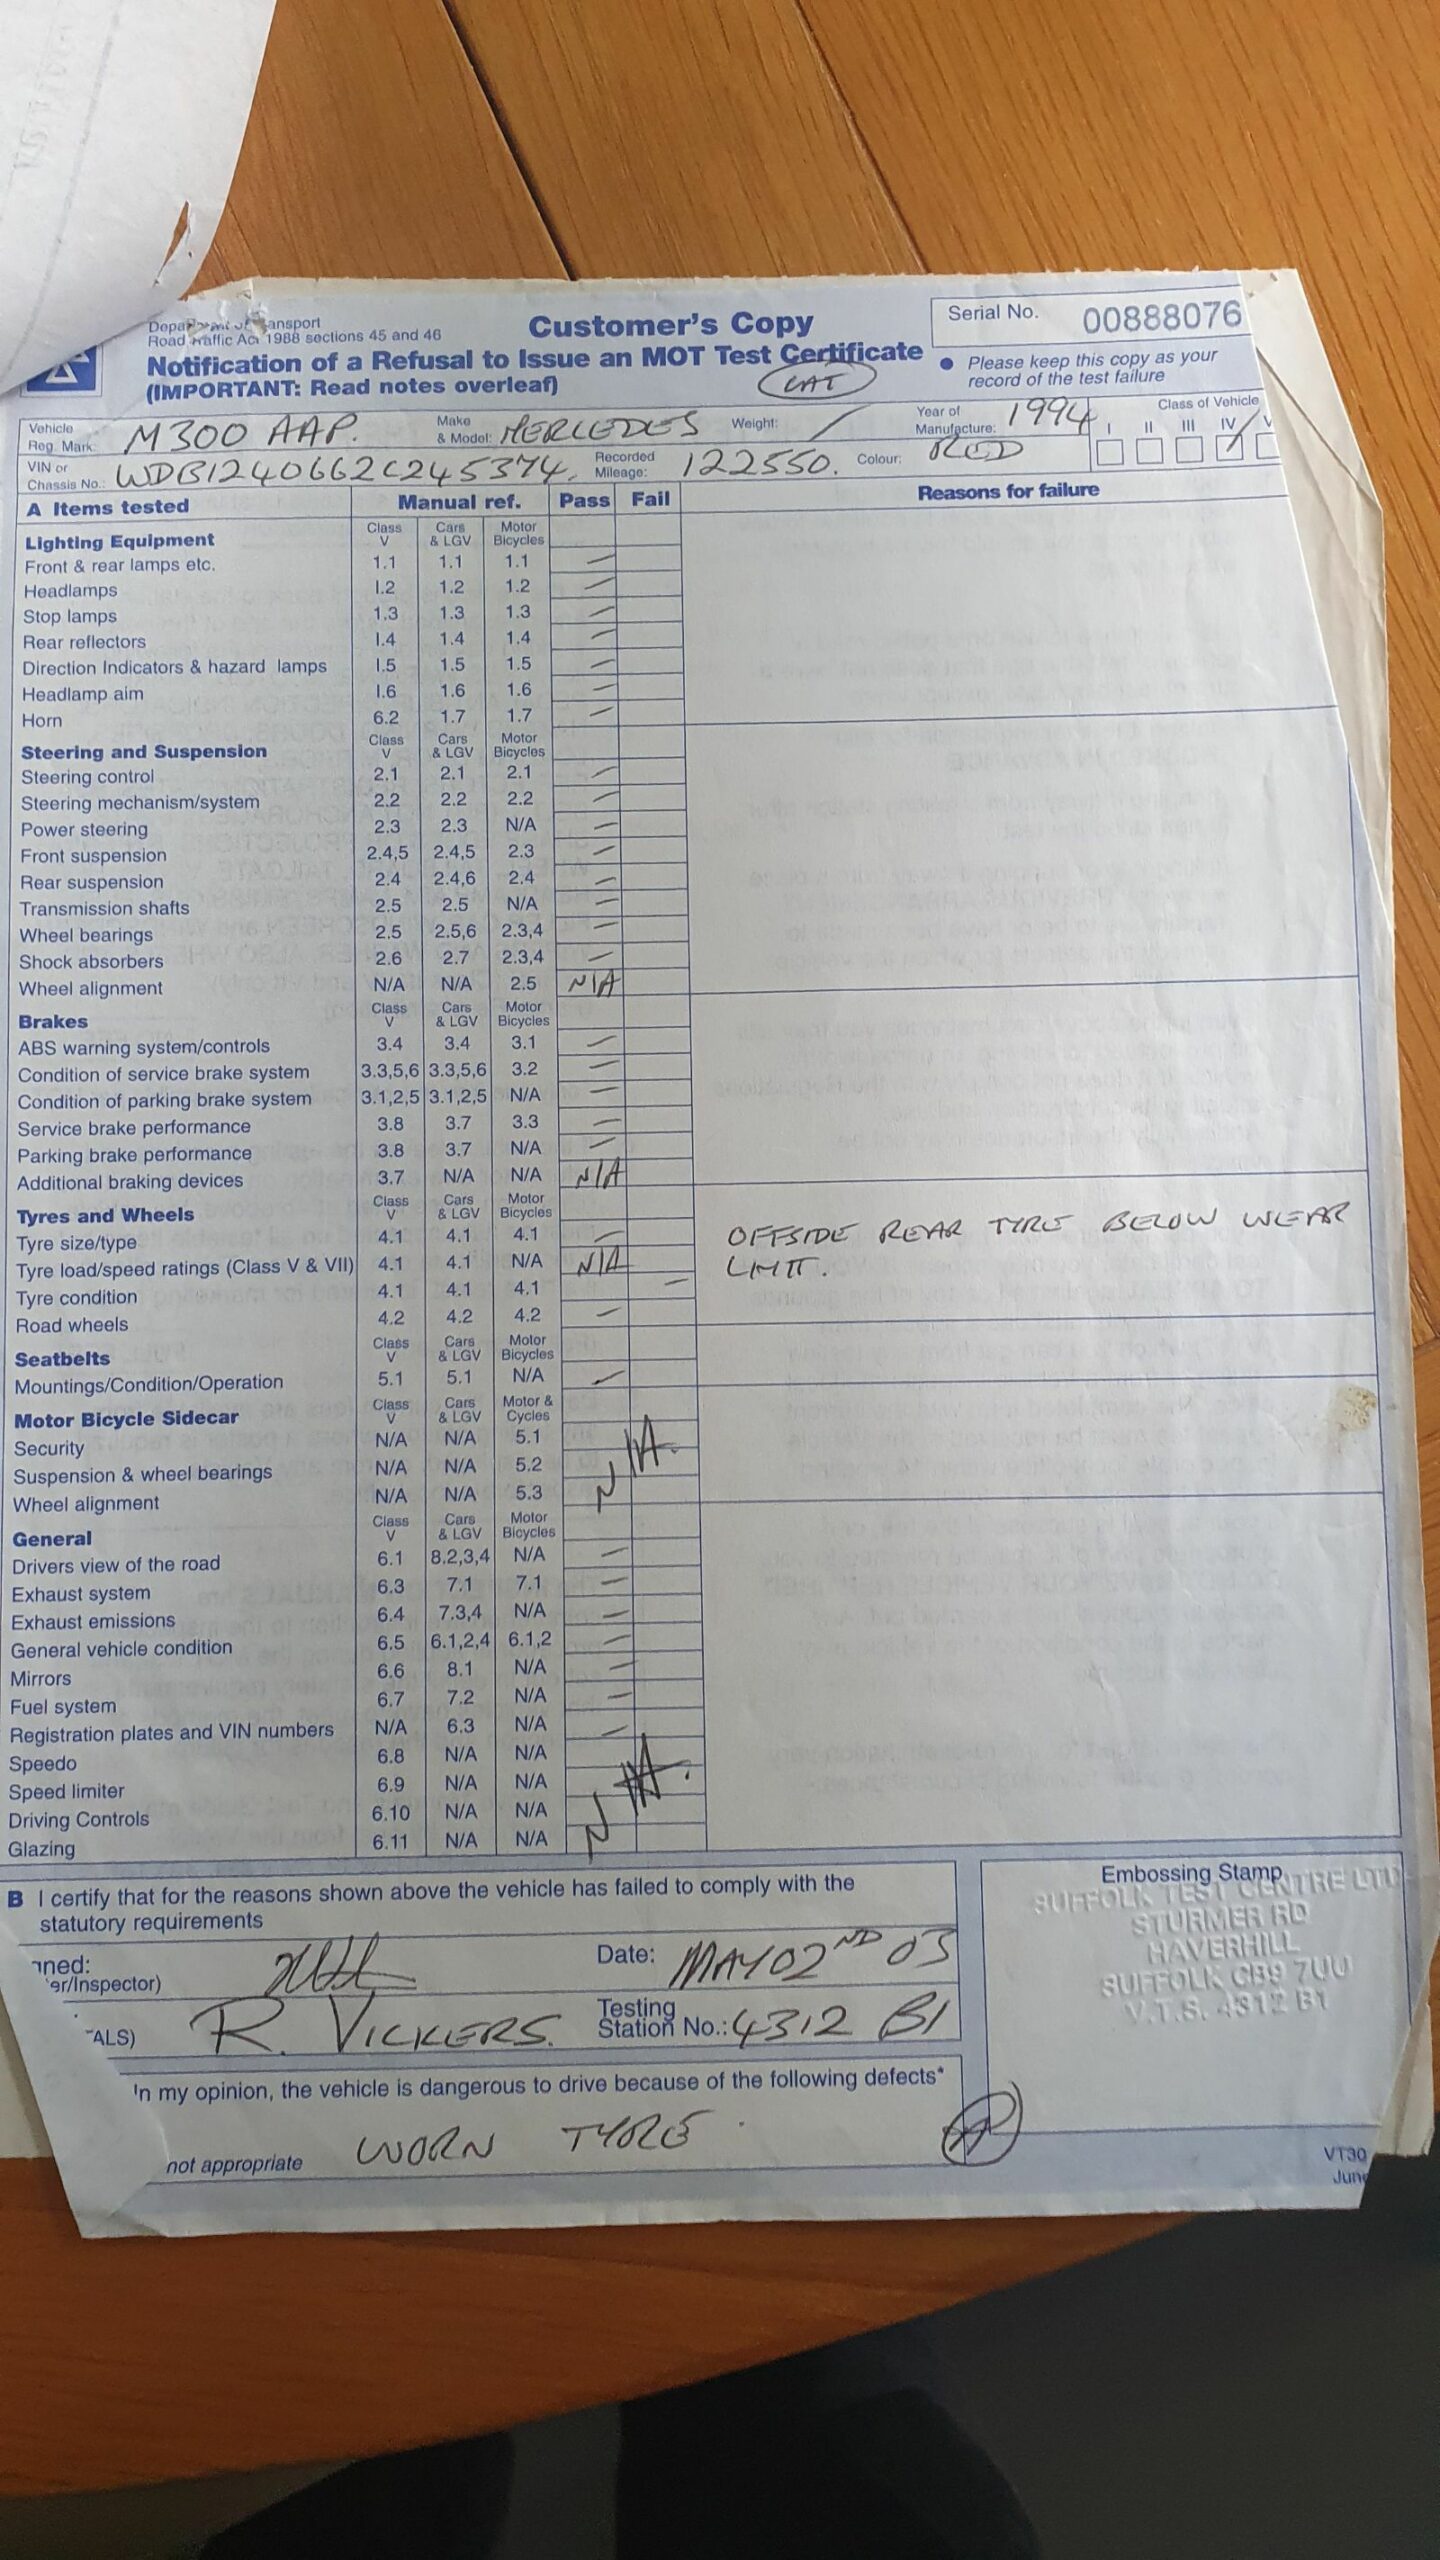 Customer's Copy
Serial No. 00888076
Road Traffic Act 1988 sections 45 and 46
Notification of a Refusal to Issue an MOT Test Certificate
(IMPORTANT: Read notes overleaf)
CAT
• Please keep this copy as your
record of the test failure
Vehicle Reg. Mark: M300 AAP. Make & Model: MERCEDES Weight: / Year of Manufacture: 1994 Class of Vehicle
I II III IV V
VIN or Chassis No.: WDB1240662C245374. Recorded Mileage: 122550. Colour: RED
A Items tested Manual ref. Pass Fail Reasons for failure
Lighting Equipment Class V Cars & LGV Motor Bicycles
Front & rear lamps etc. 1.1 1.1 1.1
Headlamps 1.2 1.2 1.2
Stop lamps 1.3 1.3 1.3
Rear reflectors 1.4 1.4 1.4
Direction Indicators & hazard lamps 1.5 1.5 1.5
Headlamp aim 1.6 1.6 1.6
Horn 6.2 1.7 1.7
Steering and Suspension Class V Cars & LGV Motor Bicycles
Steering control 2.1 2.1 2.1
Steering mechanism/system 2.2 2.2 2.2
Power steering 2.3 2.3 N/A
Front suspension 2.4,5 2.4,5 2.3
Rear suspension 2.4 2.4,6 2.4
Transmission shafts 2.5 2.5 N/A
Wheel bearings 2.5 2.5,6 2.3,4
Shock absorbers 2.6 2.7 2.3,4
Wheel alignment N/A N/A 2.5 N/A
Brakes Class V Cars & LGV Motor Bicycles
ABS warning system/controls 3.4 3.4 3.1
Condition of service brake system 3.3,5,6 3.3,5,6 3.2
Condition of parking brake system 3.1,2,5 3.1,2,5 N/A
Service brake performance 3.8 3.7 3.3
Parking brake performance 3.8 3.7 N/A
Additional braking devices 3.7 N/A N/A N/A
Tyres and Wheels Class V Cars & LGV Motor Bicycles
Tyre size/type 4.1 4.1 4.1
OFFSIDE REAR TYRE BELOW WEAR
LIMIT.
Tyre load/speed ratings (Class V & VII) 4.1 4.1 N/A N/A
Tyre condition 4.1 4.1 4.1
Road wheels 4.2 4.2 4.2
Seatbelts Class V Cars & LGV Motor Bicycles
Mountings/Condition/Operation 5.1 5.1 N/A
Motor Bicycle Sidecar Class V Cars & LGV Motor & Cycles
Security N/A N/A 5.1
Suspension & wheel bearings N/A N/A 5.2
Wheel alignment N/A N/A 5.3
N/A.
General Class V Cars & LGV Motor Bicycles
Drivers view of the road 6.1 8.2,3,4 N/A
Exhaust system 6.3 7.1 7.1
Exhaust emissions 6.4 7.3,4 N/A
General vehicle condition 6.5 6.1,2,4 6.1,2
Mirrors 6.6 8.1 N/A
Fuel system 6.7 7.2 N/A
Registration plates and VIN numbers N/A 6.3 N/A
Speedo 6.8 N/A N/A
Speed limiter 6.9 N/A N/A
Driving Controls 6.10 N/A N/A
Glazing 6.11 N/A N/A
N/A.
B I certify that for the reasons shown above the vehicle has failed to comply with the
statutory requirements
Date: MAY 02ND 03
er/Inspector)
ALS) R. VICKERS. Testing Station No.: 4312 B1
In my opinion, the vehicle is dangerous to drive because of the following defects*
not appropriate WORN TYRE.
Embossing Stamp
SUFFOLK TEST CENTRE LTD
STURMER RD
HAVERHILL
SUFFOLK CB9 7UU
V.T.S. 4312 B1
VT30
June